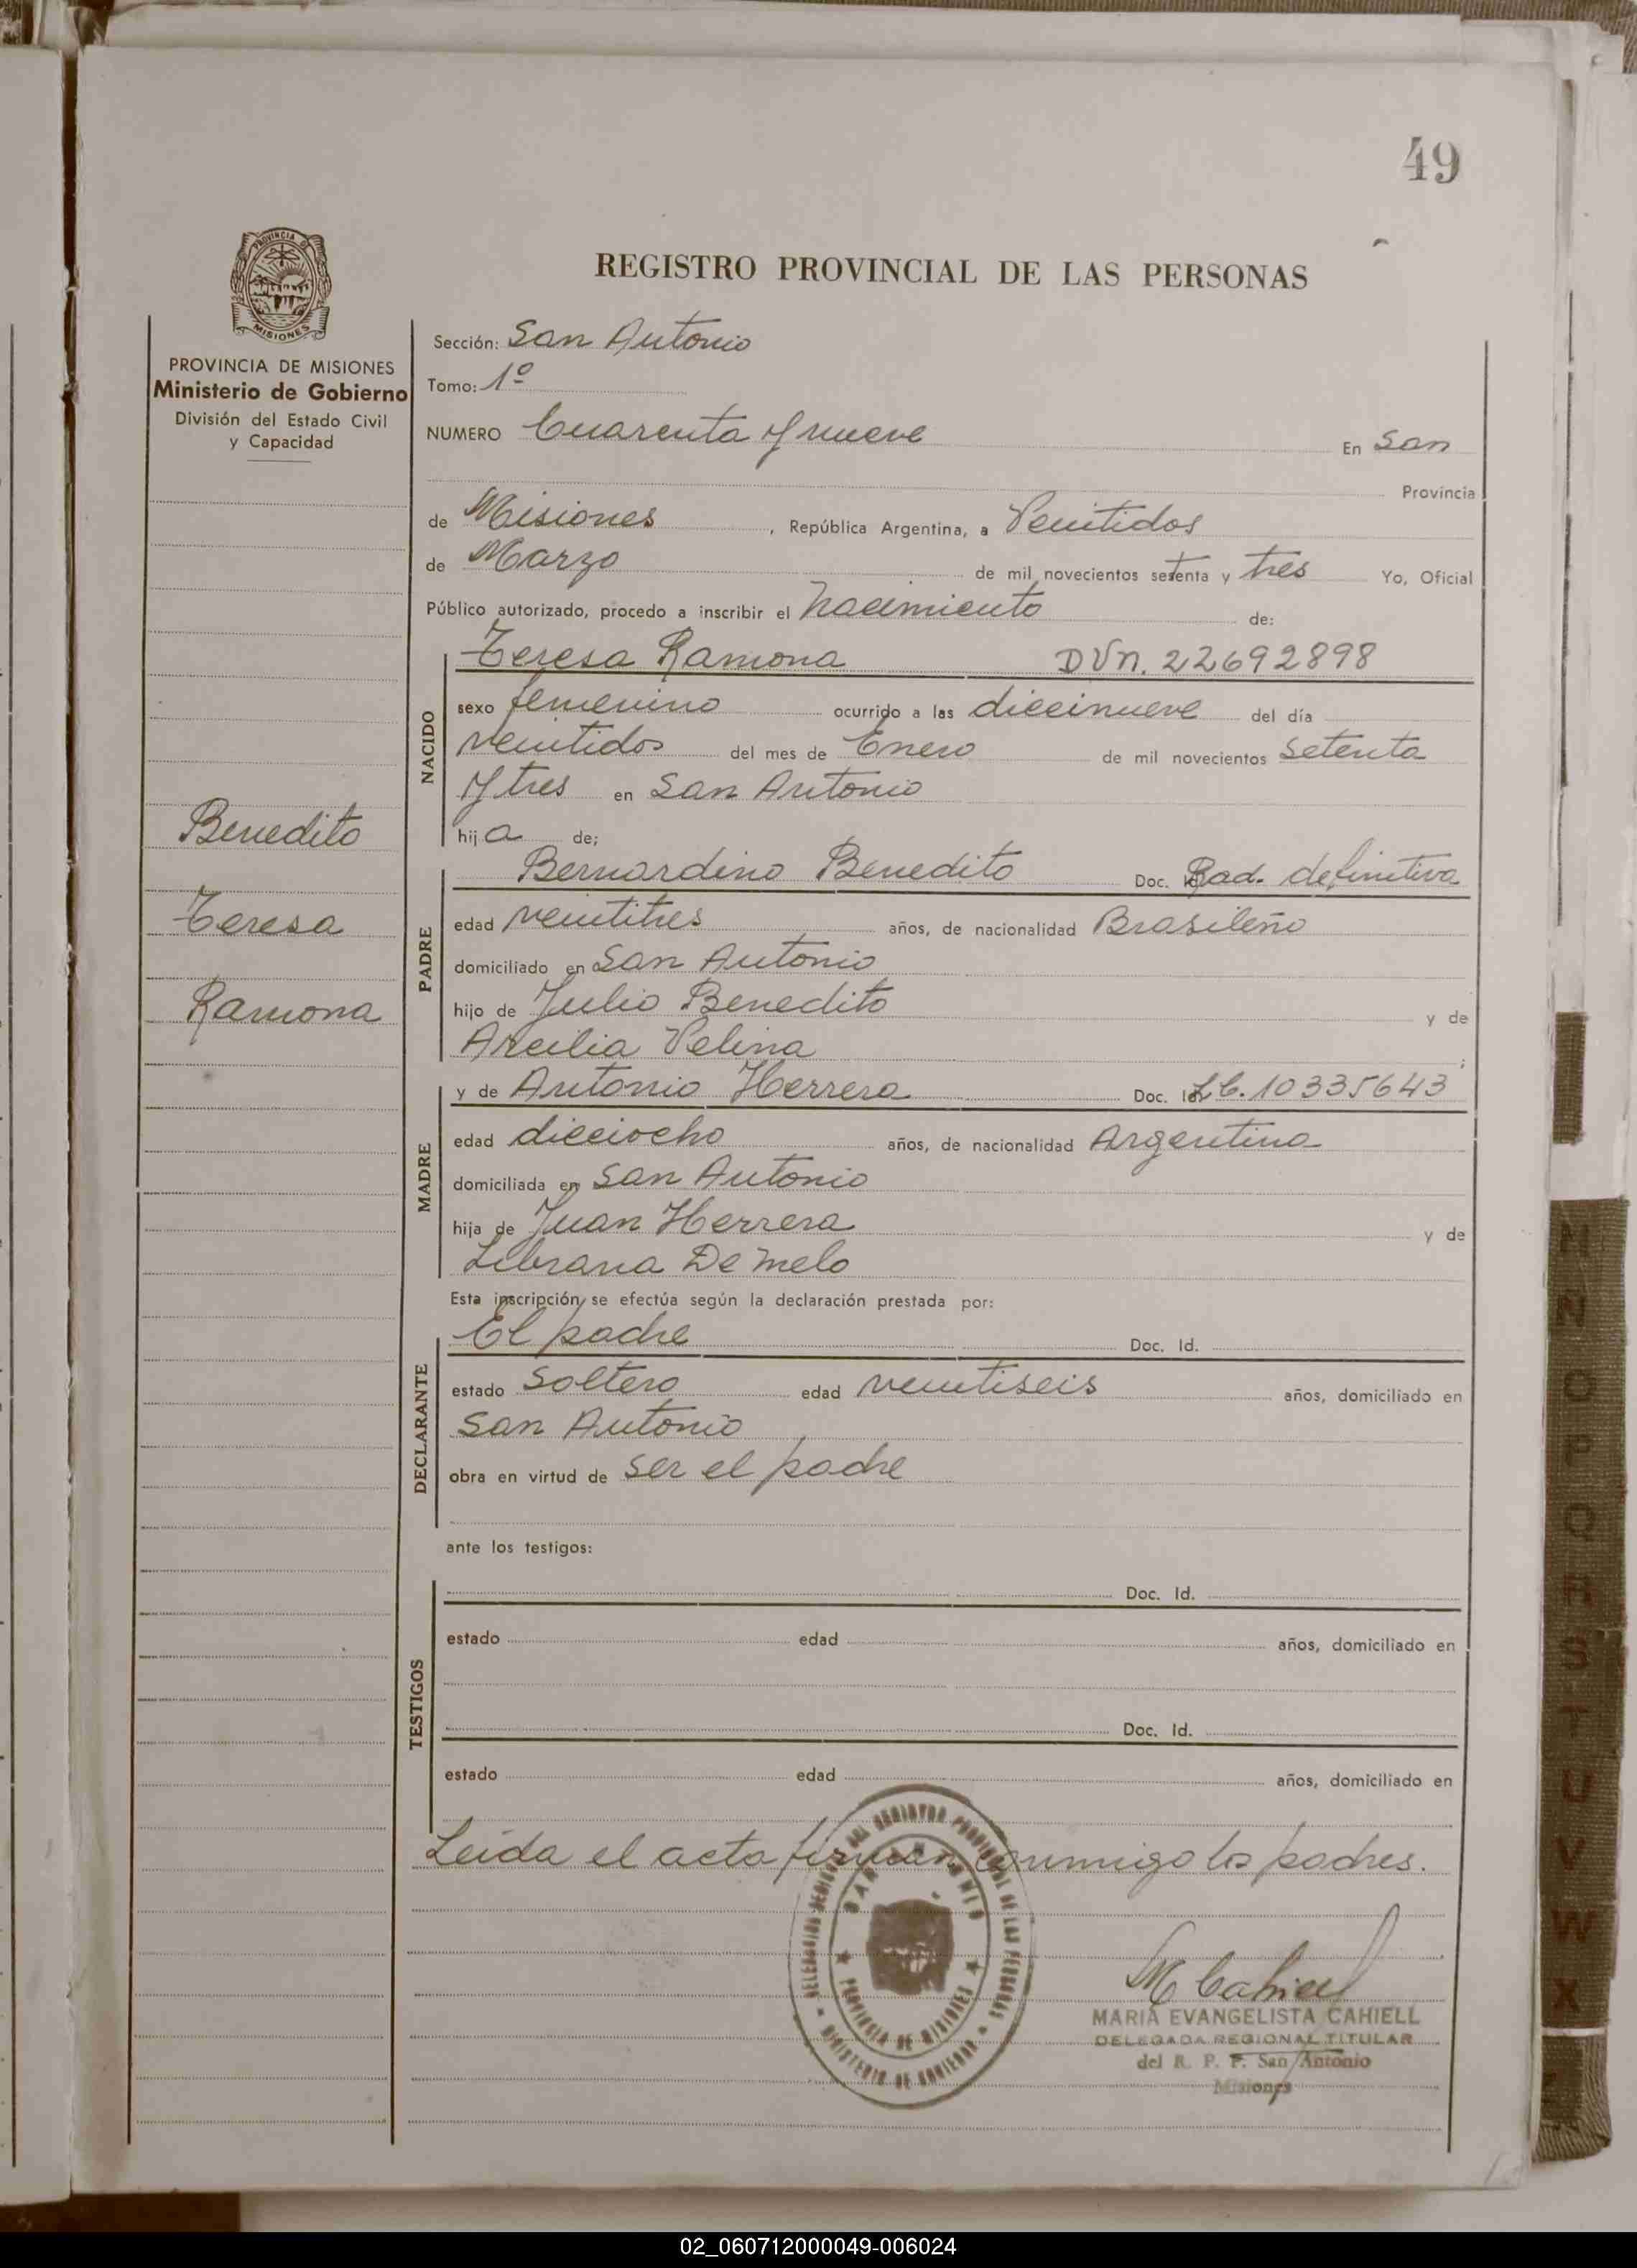 49
PROVINCIA DE
MISIONES
REGISTRO PROVINCIAL DE LAS PERSONAS
PROVINCIA DE MISIONES
Ministerio de Gobierno
División del Estado Civil
y Capacidad
Benedito
Teresa
Ramona
Sección: San Antonio
Tomo: 1º
NUMERO Cuarenta y nueve En San
Provincia
de Misiones, República Argentina, a Veintidos
de Marzo de mil novecientos setenta y tres Yo, Oficial
Público autorizado, procedo a inscribir el nacimiento de:
NACIDO
Teresa Ramona DVn. 22692898
sexo femenino ocurrido a las diecinueve del día
veintidos del mes de Enero de mil novecientos setenta
y tres en San Antonio
hija de;
PADRE
Bernardino Benedito Doc. Rad. definitiva
edad veintitres años, de nacionalidad Brasileño
domiciliado en San Antonio
hijo de Julio Benedito y de
Arcilia Velina
MADRE
y de Antonio Herrera Doc. Id. LC. 10335643
edad dieciocho años, de nacionalidad Argentina
domiciliada en San Antonio
hija de Juan Herrera y de
Librana De melo
Esta inscripción se efectúa según la declaración prestada por:
DECLARANTE
El padre Doc. Id.
estado Soltero edad veintiseis años, domiciliado en
San Antonio
obra en virtud de ser el padre
ante los testigos:
TESTIGOS
Doc. Id.
estado edad años, domiciliado en
Doc. Id.
estado edad años, domiciliado en
Leída el acta firman conmigo los padres.
SAN ANTONIO
PROVINCIA DE MISIONES
MINISTERIO DE GOBIERNO
M Cahiell
MARIA EVANGELISTA CAHIELL
DELEGADA REGIONAL TITULAR
del R. P. P. San Antonio
Misiones
M
N
O
P
Q
R
S
T
U
V
W
X
02_060712000049-006024